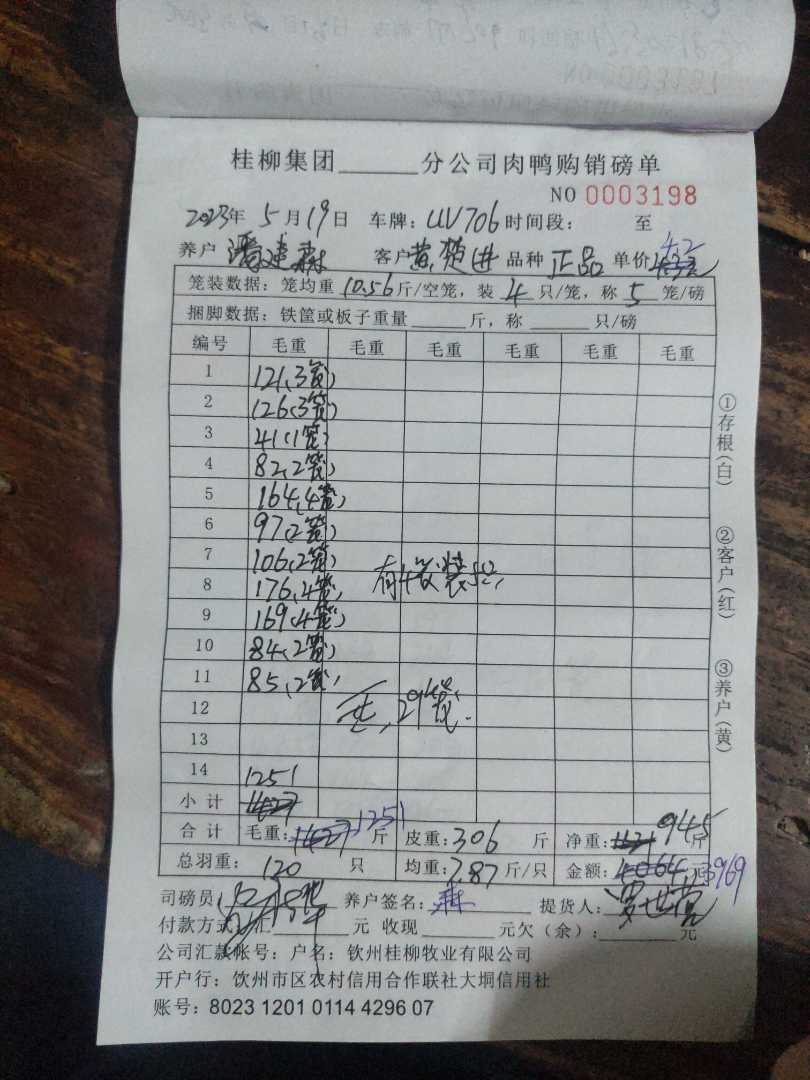 桂柳集团______分公司肉鸭购销磅单
NO 0003198
2023年 5月19日 车牌：UV706 时间段： 至
养户 潘建森 客户 黄楚进 品种 正品 单价 4.2
笼装数据：笼均重 10.56 斤/空笼，装 4 只/笼，称 5 笼/磅
捆脚数据：铁筐或板子重量______斤，称______只/磅
编号 毛重 毛重 毛重 毛重 毛重 毛重
1 121(3笼)
2 126(3笼)
3 41(1笼)
4 82(2笼)
5 164(4笼)
6 97(2笼)
7 106(2笼)
8 176(4笼) 有4笼装5只
9 169(4笼)
10 84(2笼)
11 85(2笼)
12 29笼
13
14
小计 1251
合计 毛重：1251 斤 皮重：306 斤 净重：945 斤
总羽重：120 只 均重：7.87 斤/只 金额：3969 元
司磅员： 养户签名：森 提货人：
付款方式：汇______元 收现______元欠（余）：______元
公司汇款帐号：户名：钦州桂柳牧业有限公司
开户行：饮州市区农村信用合作联社大垌信用社
账号：8023 1201 0114 4296 07
①存根（白）
②客户（红）
③养户（黄）